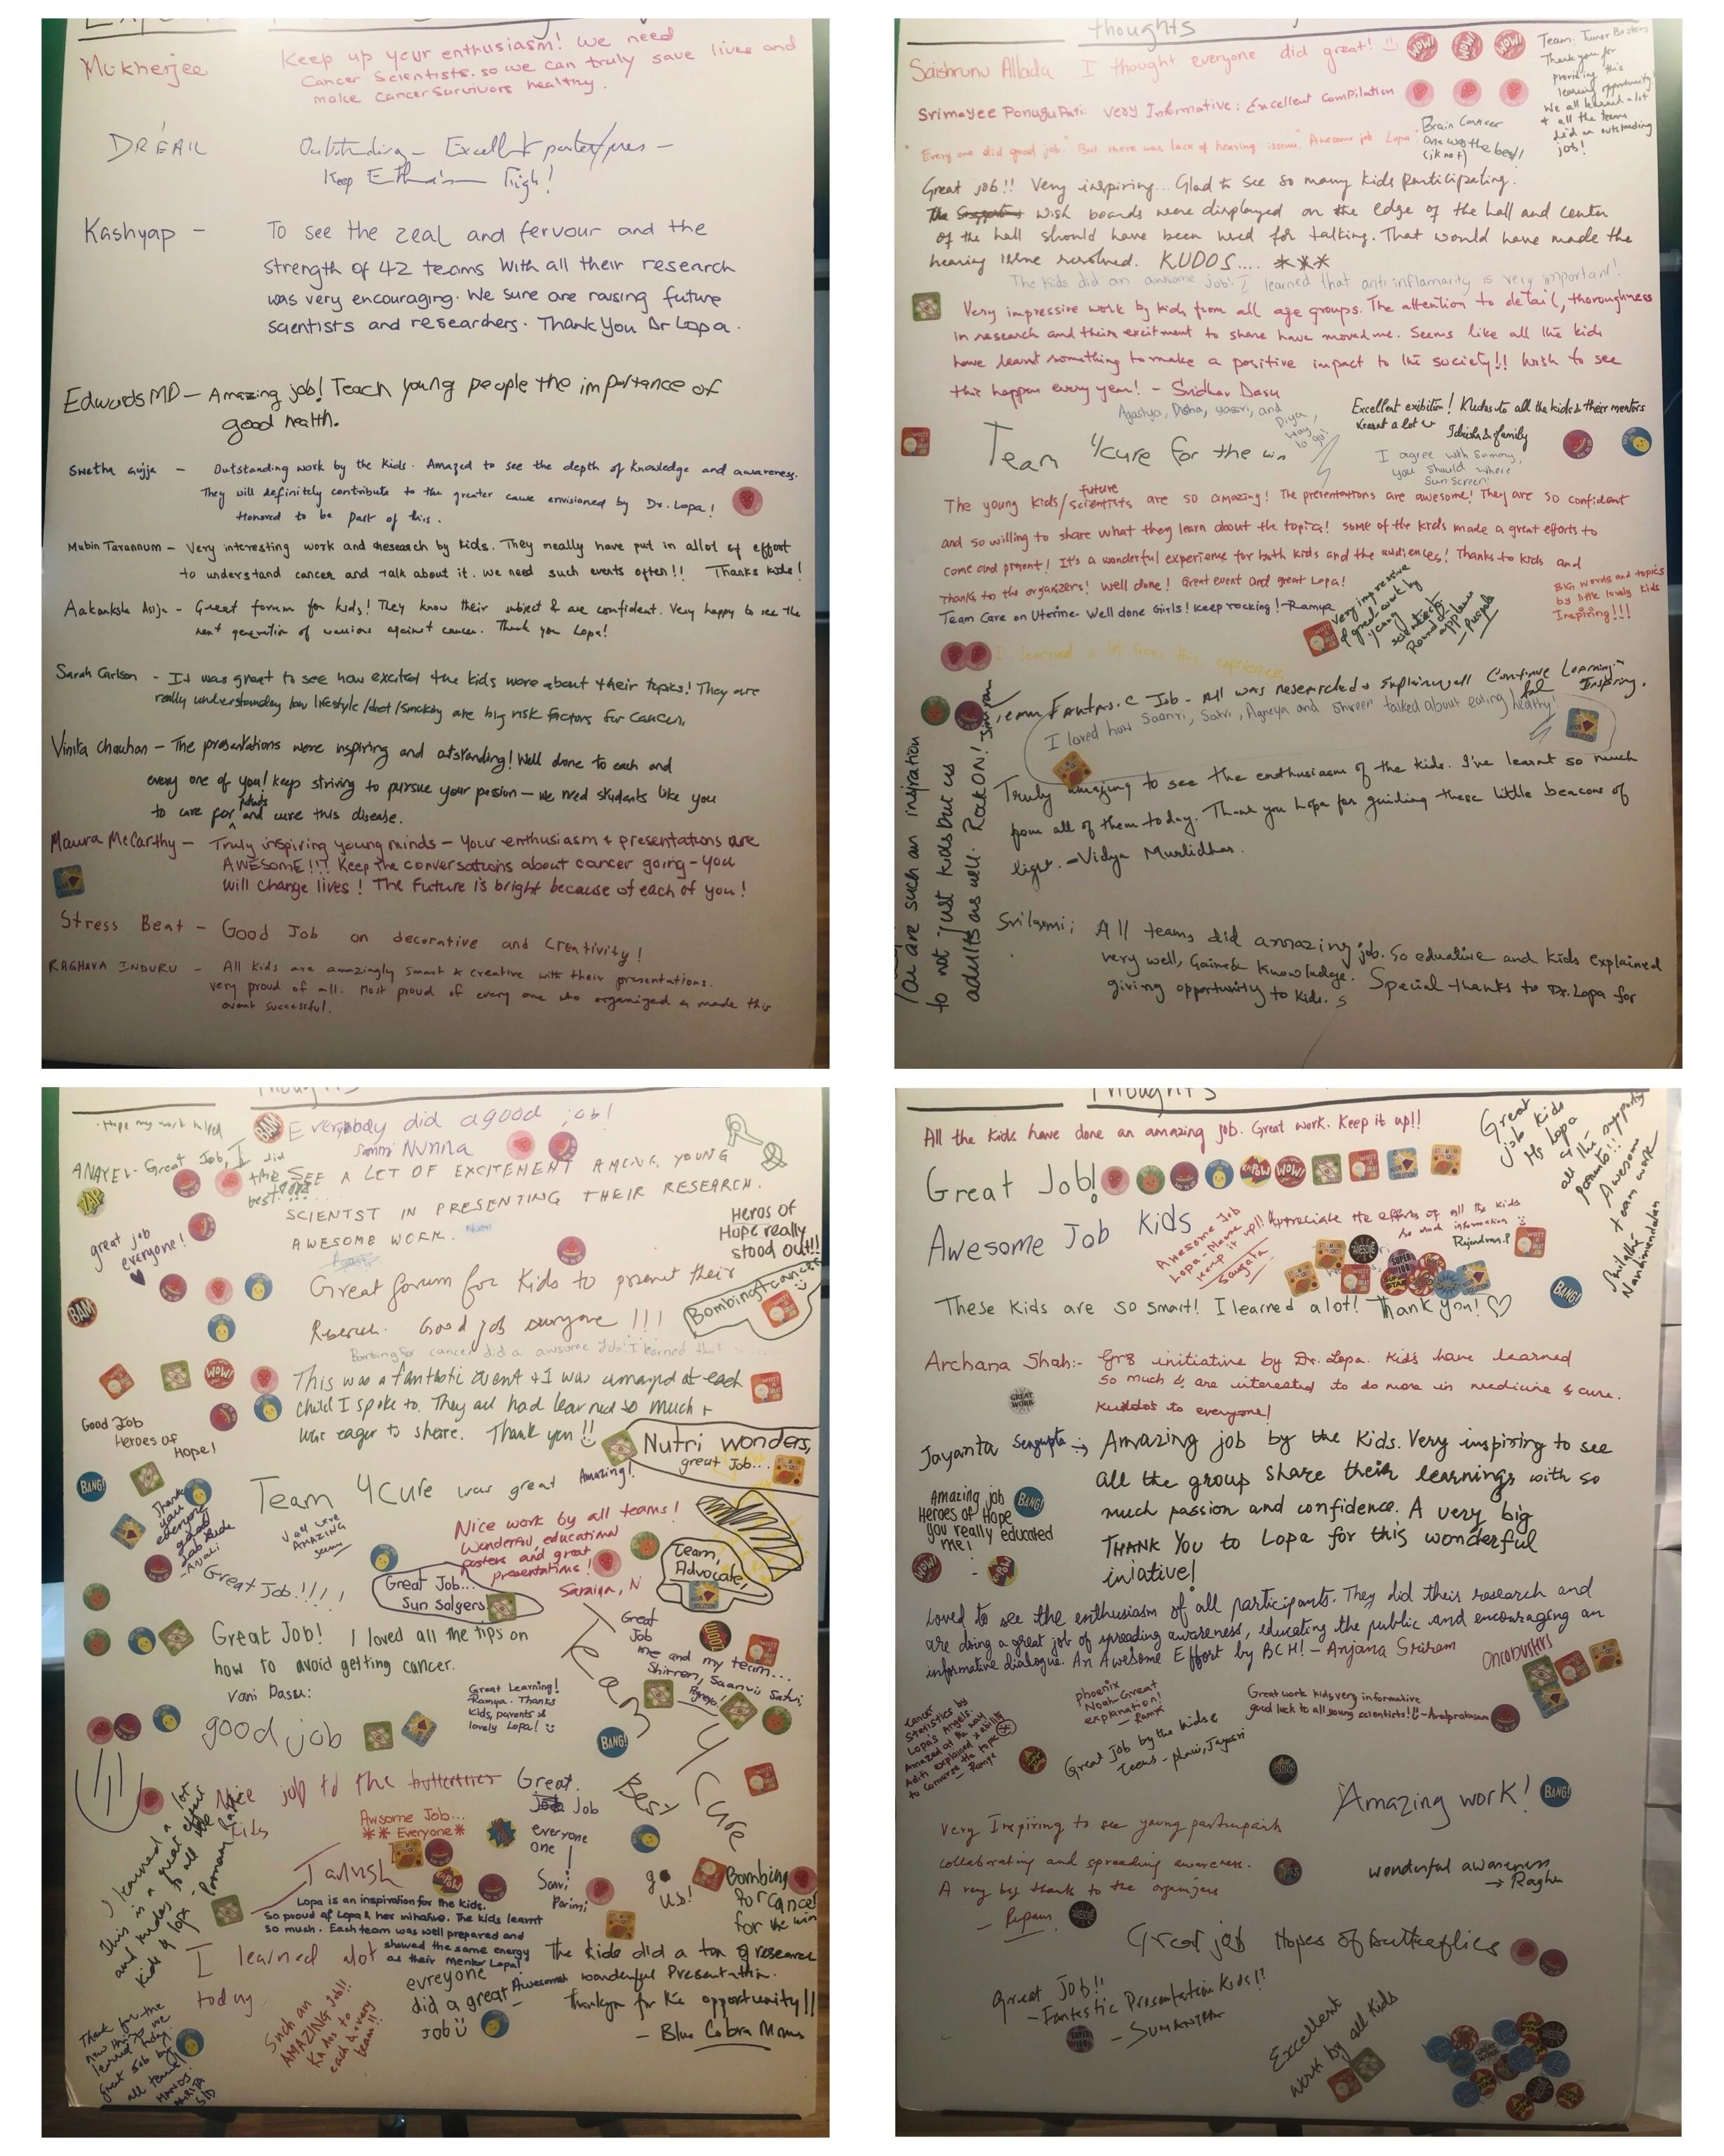 Mukherjee
Keep up your enthusiasm! We need
Cancer Scientists. so we can truly save lives and
make cancer survivors healthy.
Outstanding - Excellent
Keep High!
Kashyap -
To see the zeal and fervour and the
strength of 42 teams with all their research
was very encouraging. We sure are raising future
scientists and researchers. Thank You Dr Lopa.
Edwards MD - Amazing job! Teach young people the importance of
good health.
Swetha Gujja - Outstanding work by the kids. Amazed to see the depth of knowledge and awareness.
They will definitely contribute to the greater cause envisioned by Dr. Lopa!
Honored to be part of this.
Mubin Tarannum - Very interesting work and research by kids. They really have put in allot of effort
to understand cancer and talk about it. We need such events often!! Thanks kids!
Aakanksha Asija - Great forum for kids! They know their subject & are confident. Very happy to see the
next generation of warriors against cancer. Thank you Lopa!
Sarah Carlson - It was great to see how excited the kids were about their topics! They are
really understanding how lifestyle/diet/smoking are big risk factors for cancer.
Vinita Chauhan - The presentations were inspiring and outstanding! Well done to each and
every one of you! Keep striving to pursue your passion - we need students like you
to care for patients and cure this disease.
Maura McCarthy - Truly inspiring young minds - Your enthusiasm + presentations are
AWESOME!!! Keep the conversations about cancer going - you
will change lives! The future is bright because of each of you!
Stress Beat - Good Job on decorative and creativity!
RAGHAVA INDURU - All kids are amazingly smart & creative with their presentations.
very proud of all. Most proud of every one who organized & made this
event successful.
Thoughts
I thought everyone did great!
WOW!
WOW!
WOW!
Team: Tumor Busters
Thank you for
providing this
learning opportunity!
We all learned a lot
+ all the teams
did an outstanding
job!
Srimayee Ponugupati: Very Informative; Excellent Compilation
Brain Cancer
One was the best!
(jk not)
"Every one did good job." But there was lack of hearing issues. "Awesome job Lopa".
Great job!! Very inspiring... Glad to see so many kids participating.
wish boards were displayed on the edge of the hall and center
of the hall should have been used for talking. That would have made the
hearing issue resolved. KUDOS....
The kids did an awsome job! I learned that anti inflamarity is very important!
Very impressive work by kids from all age groups. The attention to detail, thoroughness
in research and their excitment to share have moved me. Seems like all the kids
have learnt something to make a positive impact to the society!! Wish to see
this happen every year! - Sridhar Dasu
way to go!
Excellent exibition! Kudos to all the kids & their mentors
Learnt a lot
& family
Team 4cure for the win
I agree with Sammy,
you should where
Sun Screen!
The young kids/future scientists are so amazing! The presentations are awesome! They are so confident
and so willing to share what they learn about the topics! Some of the kids made a great efforts to
come and present! It's a wonderful experience for both kids and the audiences! Thanks to kids and
thanks to the organizers! Well done! Great event and great Lopa!
Team Care on Uterine - Well done Girls! Keep rocking! - Ramya
Very impressive
& great work by
young
scientists
Round of
applause
BIG words and topics
by little lovely kids
Inspiring!!!
I learned a lot from this experience
Job - All was researched & explain well Continue Learning
Inspiring.
I loved how Saanvi, Satvi, Agneya and Shreen talked about eating healthy!
You are such an inspiration
to not just kids but us
adults as well. Rock ON!
Truly amazing to see the enthusiasm of the kids. I've learnt so much
from all of them today. Thank you Lopa for guiding these little beacons of
light. - Vidya Murlidhar.
All teams did amazing job. So eduative and kids explained
very well, Gained Knowledge. Special thanks to Dr. Lopa for
giving opportunity to kids.
Thoughts
Hope my work helped
BAM
Everybody did a good job!
Sammi Nunna
Great Job, I did
the best!
SEE A LOT OF EXCITEMENT AMONG YOUNG
SCIENTST IN PRESENTING THEIR RESEARCH.
AWESOME WORK.
ZAP
great job
everyone!
Heros of
Hope really
stood out!!
Great forum for kids to present their
Research. Good job everyone!!!
Bombing cancer
BAM
Bombing for cancer did a awsome job! I learned that
WOW!
This was a fantastic event & I was amazed at each
child I spoke to. They all had learned so much +
was eager to share. Thank you!!
Good Job
Heroes of
Hope!
Nutri wonders,
great Job...
BANG!
Team 4Cure was great
Amazing!
Thank
you
everyone
good
Job kids
- Anjali
You were
AMAZING
Nice work by all teams!
Wonderful, educational
posters and great
presentations!
Saraiya, N
Team,
Advocate,
Great Job!!!!
Great Job...
Sun Solgers
Great
Job
me and my team...
Shirren, Saanvi, Satvi,
Great Job! I loved all the tips on
how to avoid getting cancer.
Vani Dassu:
Great Learning!
Ramya. Thanks
Kids, parents &
lovely Lopa!
Team 4 Cure
Best
good job
BANG!
Nice job to the butterflies
kids
Great
Job
everyone
one
Awsome Job...
Everyone
I learned a lot
This is a great effort
and kudos to all the
kids & Lopa
Tanush
KAPOW
go
us!
Bombing
for cancer
for the win
Lopa is an inspiration for the kids.
So proud of Lopa & her initiative. The kids learnt
so much. Each team was well prepared and
showed the same energy
as their mentor Lopa!
I learned alot
today
evreyone
did a great
job
Such an
AMAZING Job!!
Kudos to
each & every
team!!
The kids did a ton of research
Awesome wonderful Presentation.
Thankyou for the opportunity!!
- Blue Cobra Moms
Thank for the
new things we
learned today.
great job by
all teams!
Thoughts
All the kids have done an amazing job. Great work. Keep it up!!
Great
job kids
Ms Lopa
& all the supporting
parents!!
Awesome
team work
Great Job!
KAPOW
WOW!
Awesome Job Kids
Awesome Job
Lopa - Please
keep it up!!
Sangata
Appreciate the efforts of all the kids
So much information
Rajendran.P
AWESOME
SUPER
STAR
BANG!
These kids are so smart! I learned a lot! Thank you!
Archana Shah:- Gr8 initiative by Dr. Lopa. Kids have learned
so much & are interested to do more in medicine & cure.
Kuddos to everyone!
GREAT
WORK
Jayanta Sengupta
Amazing job by the kids. Very inspiring to see
all the group share their learnings with so
much passion and confidence. A very big
THANK YOU to Lopa for this wonderful
iniative!
Amazing job
Heroes of Hope
you really educated
me!
BANG!
WOW!
KAPOW
Loved to see the enthusiasm of all participants. They did their research and
are doing a great job of spreading awareness, educating the public and encouraging an
informative dialogue. An Awesome Effort by BCH! - Anjana Sriram
Oncobusters
Cancer
Statistics by
Lopa's Angels.
Amazed at the way
Aditi explained & ability
to converse the topic
- Ramya
phoenix
Noah - Great
explanation!
- Ramya
Great work kids very informative
good luck to all young scientists!!
Great Job by the kids &
teens
WOW
Amazing work!
BANG!
Very Inspiring to see young participants
collaborating and spreading awareness.
A very big thanks to the organizers
AWESOME
wonderful awareness
→ Raghu
Great job Hopes of Butterflies
Great Job!!
- Fantastic Presentation Kids!!
Excellent
work by all kids